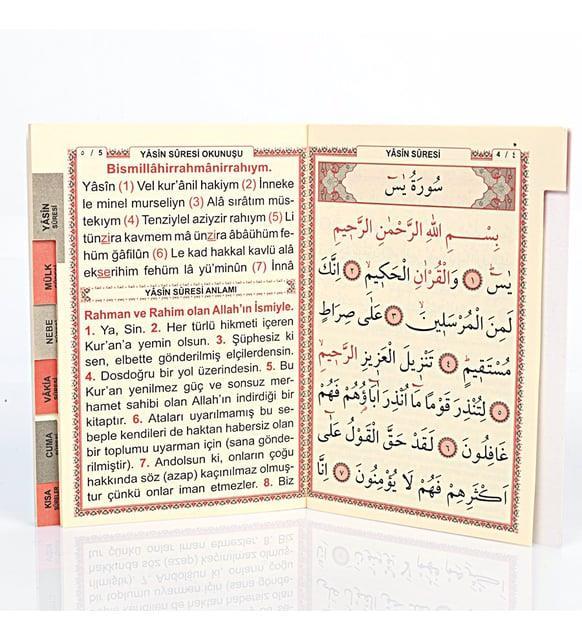 ٥ / 5
YÂSİN SÛRESİ OKUNUŞU
Bismillâhirrahmânirrahıym.
Yâsîn (1) Vel kur'ânil hakiym (2) İnneke
le minel murseliyn (3) Alâ sırâtım müs-
tekıym (4) Tenziylel aziyzir rahıym (5) Li
tünzira kavmem mâ ünzira âbâühüm fe-
hüm ğâfilûn (6) Le kad hakkal kavlü alâ
ekserihim fehüm lâ yü'minûn (7) İnnâ
YÂSİN SÛRESİ ANLAMI
Rahman ve Rahim olan Allah'ın İsmiyle.
1. Ya, Sin. 2. Her türlü hikmeti içeren
Kur'an'a yemin olsun. 3. Şüphesiz ki
sen, elbette gönderilmiş elçilerdensin.
4. Dosdoğru bir yol üzerindesin. 5. Bu
Kur'an yenilmez güç ve sonsuz mer-
hamet sahibi olan Allah'ın indirdiği bir
kitaptır. 6. Ataları uyarılmamış bu se-
beple kendileri de haktan habersiz olan
bir toplumu uyarman için (sana gönde-
rilmiştir). 7. Andolsun ki, onların çoğu
hakkında söz (azap) kaçınılmaz olmuş-
tur çünkü onlar iman etmezler. 8. Biz
YÂSİN SÛRESİ
4 / ٤
سُورَةُ يٰسٓ
بِسْمِ اللّٰهِ الرَّحْمٰنِ الرَّحٖيمِ
يٰسٓ ﴿١﴾ وَالْقُرْاٰنِ الْحَكٖيمِ ﴿٢﴾ اِنَّكَ
لَمِنَ الْمُرْسَلٖينَ ﴿٣﴾ عَلٰى صِرَاطٍ
مُسْتَقٖيمٍ ﴿٤﴾ تَنْزٖيلَ الْعَزٖيزِ الرَّحٖيمِ
﴿٥﴾ لِتُنْذِرَ قَوْمًا مَٓا اُنْذِرَ اٰبَٓاؤُهُمْ فَهُمْ
غَافِلُونَ ﴿٦﴾ لَقَدْ حَقَّ الْقَوْلُ عَلٰٓى
اَكْثَرِهِمْ فَهُمْ لَا يُؤْمِنُونَ ﴿٧﴾ اِنَّا
YÂSİN
SÛRESİ
MÜLK
NEBE
VÂKIA
CUMA
KISA